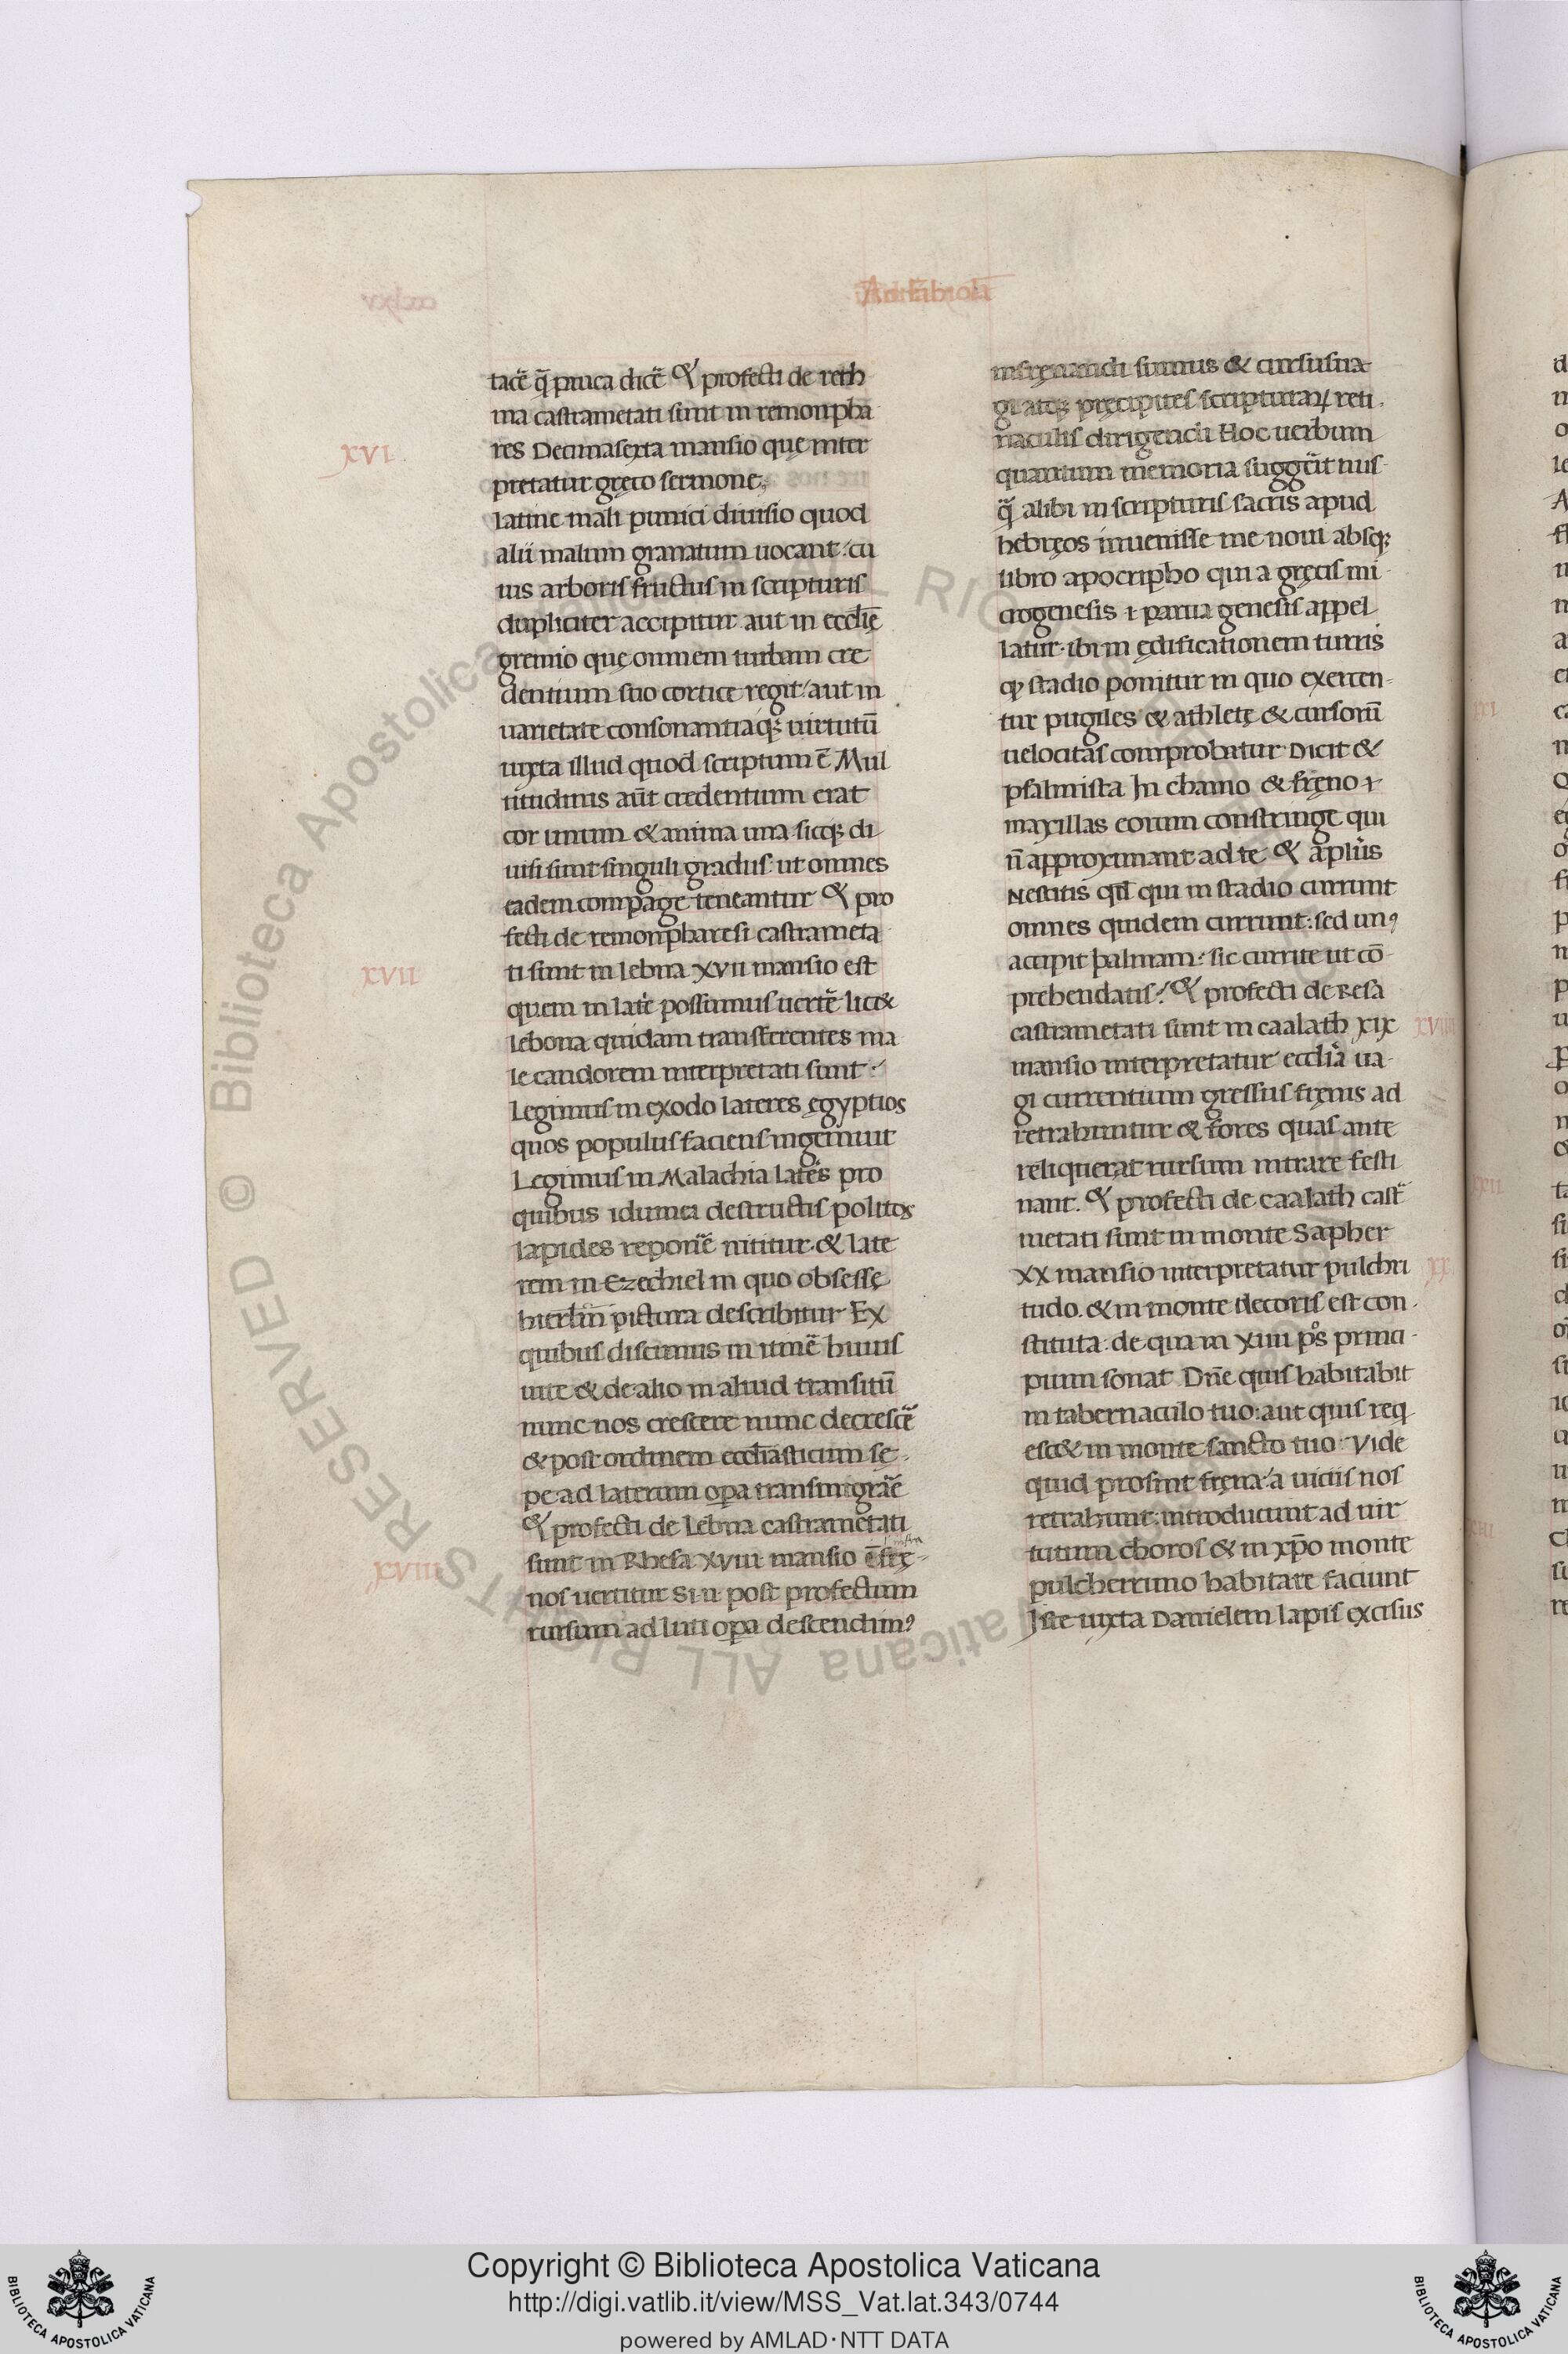 Ad Fabiolā
tacē q̄ pauca dicē Et profecti de reth
ma castrametati sunt in remonpha
res Decimasexta mansio quę inter
XVI
pretatur gręco sermone
latine mali punici diuisio quod
alii malum granatum uocant cu
ius arboris fructus in scripturis
dupliciter accipitur aut in ecclię
gremio quę omnem turbam cre
dentium suo cortice regit aut in
uarietate consonantiaq; uirtutū
iuxta illud quod scriptum ē Mul
titudinis aūt credentium erat
cor unum & anima una sicq; di
uisi sunt singuli gradus ut omnes
eadem compage teneantur Et pro
fecti de remonphares castrameta
ti sunt in lebna XVII mansio est
XVII
quem in latē possumus uertē lic&
lebona quidam transferentes ma
le candorem interpretati sunt
Legimus in exodo lateres ęgyptios
quos populus faciens ingemuit
Legimus in Malachia latēs pro
quibus idumei destructis politos
lapides reponē nititur & late
rem in Ezechiel in quo obsessę
hierlm̄ pictura describitur Ex
quibus discimus in itinē huius
uite & de alio in aliud transitū
nunc nos crescere nunc decrescē
& post ordinem eccliasticum sę
pe ad laterum opa transmigrāe
Et profecti de Lebna castrametati
sunt in Rhesa XVIII mansio ē frę
XVIII
nos uertitur Si n post profectum
rursum ad luti opa descendim9
infrenandi sumus & cursus ua
gi atq; pręcipites scripturaꝝ reti
naculis dirigendi Hoc uerbum
quantum memoria suggerit nus
q̄ alibi in scripturis sacris apud
hebręos inuenisse me noui absq;
libro apocripho qui a gręcis mi
crogenesis i parua genesis appel
latur ibi in ędificationem turris
p stadio ponitur in quo exercen
tur pugiles & athletę & cursorū
uelocitas comprobatur Dicit &
psalmista In chamo & fręno
maxillas eorum constringe qui
n̄ approximant ad te Et aplus
Nescitis qd̄ qui in stadio currunt
omnes quidem currunt sed un9
accipit palmam sic currite ut cō
prehendatis Et profecti de Resa
castrametati sunt in caalath XIX
XVIIII
mansio interpretatur ecclia ua
gi currentium gressus fręnis ad
retrahuntur & fores quas ante
reliquerat rursum intrare festi
nant. Et profecti de caalath cast̄
metati sunt in monte Sapher
XX mansio interpretatur pulchri
XX
tudo. & in monte decoris est con
stituta de qua in XIIII ps princi
pium sonat Dn̄e quis habitabit
in tabernaculo tuo aut quis req
esc& in monte sancto tuo Vide
quid prosint fręna a uiciis nos
retrahunt introducunt ad uir
tutum choros & in xp̄o monte
pulcherrimo habitare faciunt
Iste iuxta Danielem lapis excisus
© Biblioteca Apostolica Vaticana ALL RIGHTS RESERVED
Copyright © Biblioteca Apostolica Vaticana
http://digi.vatlib.it/view/MSS_Vat.lat.343/0744
powered by AMLAD·NTT DATA
BIBLIOTECA APOSTOLICA VATICANA
BIBLIOTECA APOSTOLICA VATICANA